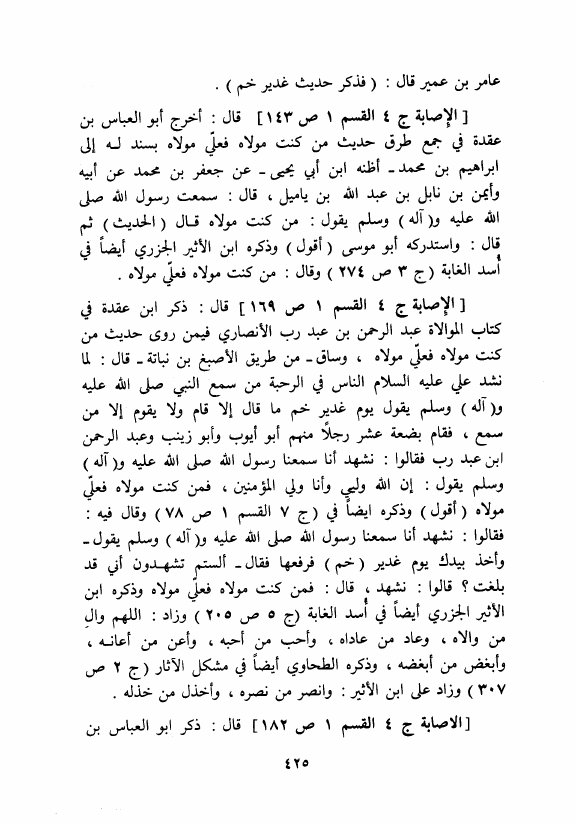 عامر بن عمير قال : ( فذكر حديث غدير خم ) .
[ الإصابة ج ٤ القسم ١ ص ١٤٣ ] قال : أخرج أبو العباس بن
عقدة في جمع طرق حديث من كنت مولاه فعلي مولاه بسند لـه إلى
ابراهيم بن محمد ـ أظنه ابن أبي يحيى ـ عن جعفر بن محمد عن أبيه
وأيمن بن نابل بن عبد الله بن ياميل ، قال : سمعت رسول الله صلى
الله عليه و( آله ) وسلم يقول : من كنت مولاه قـال ( الحديث ) ثم
قال : واستدركه أبو موسى ( أقول ) وذكره ابن الأثير الجزري أيضاً في
أُسد الغابة ( ج ٣ ص ٢٧٤ ) وقال : من كنت مولاه فعليّ مولاه .
[ الإصابة ج ٤ القسم ١ ص ١٦٩ ] قال : ذكر ابن عقدة في
كتاب الموالاة عبد الرحمن بن عبد رب الأنصاري فيمن روى حديث من
كنت مولاه فعليّ مولاه ، وساق ـ من طريق الأصبغ بن نباتة ـ قال : لما
نشد علي عليه السلام الناس في الرحبة من سمع النبي صلى الله عليه
و( آله ) وسلم يقول يوم غدير خم ما قال إلا قام ولا يقوم إلا من
سمع ، فقام بضعة عشر رجلًا منهم أبو أيوب وأبو زينب وعبد الرحمن
ابن عبد رب فقالوا : نشهد أنا سمعنا رسول الله صلى الله عليه و( آله )
وسلم يقول : إن الله وليي وأنا ولي المؤمنين ، فمن كنت مولاه فعليّ
مولاه ( أقول ) وذكره ايضاً في ( ج ٧ القسم ١ ص ٧٨ ) وقال فيه :
فقالوا : نشهد أنا سمعنا رسول الله صلى الله عليه و( آله ) وسلم يقول ـ
وأخذ بيدك يوم غدير ( خم ) فرفعها فقال ـ ألستم تشهـدون أني قد
بلغت ؟ قالوا : نشهد ، قال : فمن كنت مولاه فعليّ مولاه وذكره ابن
الأثير الجزري أيضاً في أُسد الغابة ( ج ٥ ص ٢٠٥ ) وزاد : اللهم والِ
من والاه ، وعاد من عاداه ، وأحب من أحبه ، وأعن من أعانـه ،
وأبغض من أبغضه ، وذكره الطحاوي أيضاً في مشكل الآثار ( ج ٢ ص
٣٠٧ ) وزاد على ابن الأثير : وانصر من نصره ، وأخذل من خذله .
[ الاصابة ج ٤ القسم ١ ص ١٨٢ ] قال : ذكر ابو العباس بن
٤٢٥